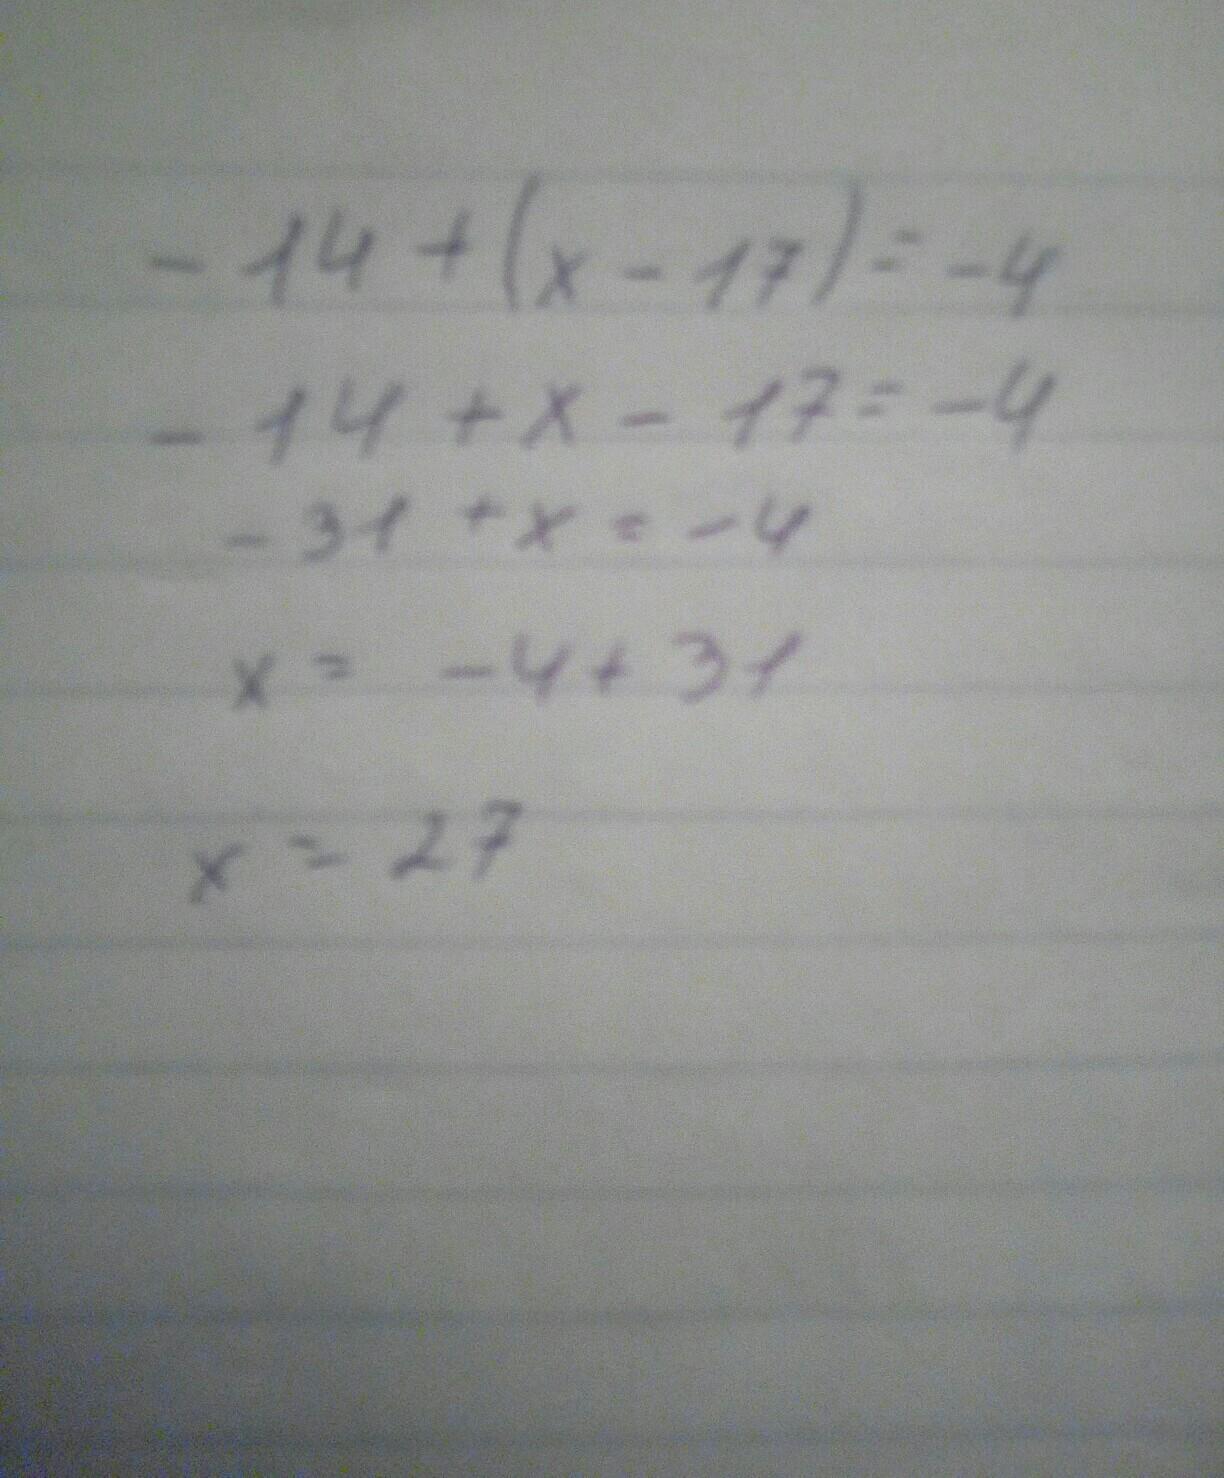 - 14 + (x - 17) = -4
- 14 + x - 17 = -4
- 31 + x = -4
x = -4 + 31
x = 27